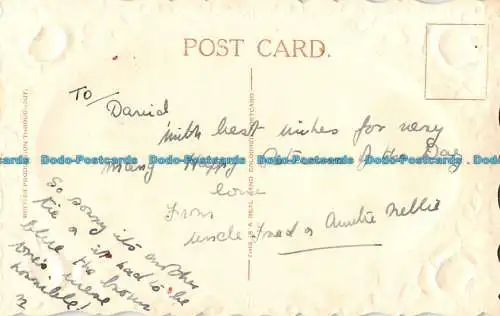 POST CARD.
TO/ David
With best wishes for very
many Happy Returns of the Day
love
From
Uncle Fred & Auntie Nellie
So sorry its another
tie & it had to be
blue the brown
ones were
horrible!
N
BRITISH PRODUCTION THROUGHOUT.
THIS IS A REAL HAND COLOURED POSTCARD
Dodo-Postcards Dodo-Postcards Dodo-Postcards Dodo-Postcards
Dodo-Postcards Dodo-Postcards Dodo-Postcards